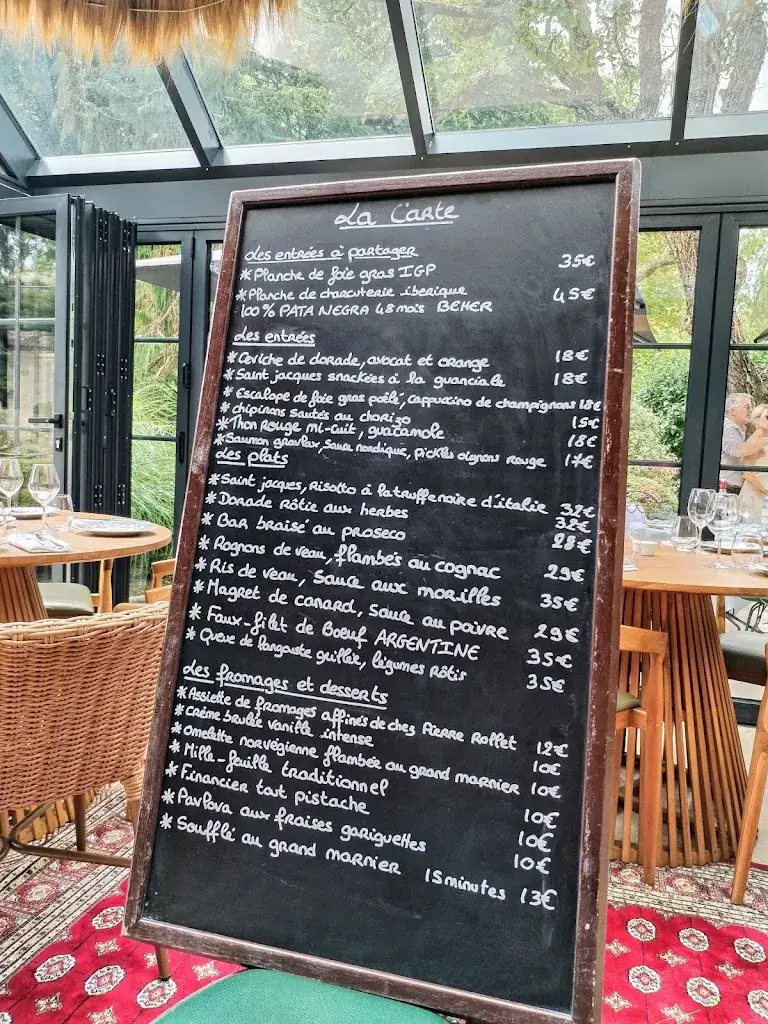 La Carte
Les entrées à partager
* Planche de foie gras IGP 35€
* Planche de charcuterie iberique
100% PATA NEGRA 48 mois BEHER 45€
Les entrées
* Ceviche de dorade, avocat et orange 18€
* Saint jacques snackées à la guanciale 18€
* Escalope de foie gras poêlé, cappucino de champignons 18€
* chipirons sautés au chorizo 15€
* Thon Rouge mi-cuit, guacamole 18€
* Saumon gravlax, Sauce nordique, pickles oignons rouge 17€
Les plats
* Saint jacques, Risotto à la truffe noire d'italie 32€
* Dorade Rôtie aux herbes 32€
* Bar braisé au proseco 28€
* Rognons de veau, flambés au cognac 29€
* Ris de veau, Sauce aux morilles 35€
* Magret de canard, Sauce au poivre 29€
* Faux-filet de Boeuf ARGENTINE 35€
* Queue de langouste grillée, légumes rôtis 35€
Les fromages et desserts
* Assiette de fromages affinés de chez Pierre Rollet 12€
* Crème brulée vanille intense 10€
* omelette norvégienne flambée au grand marnier 10€
* Mille-feuille traditionnel 10€
* Financier tout pistache 10€
* Pavlova aux fraises gariguettes 10€
* Soufflé au grand marnier 15 minutes 13€